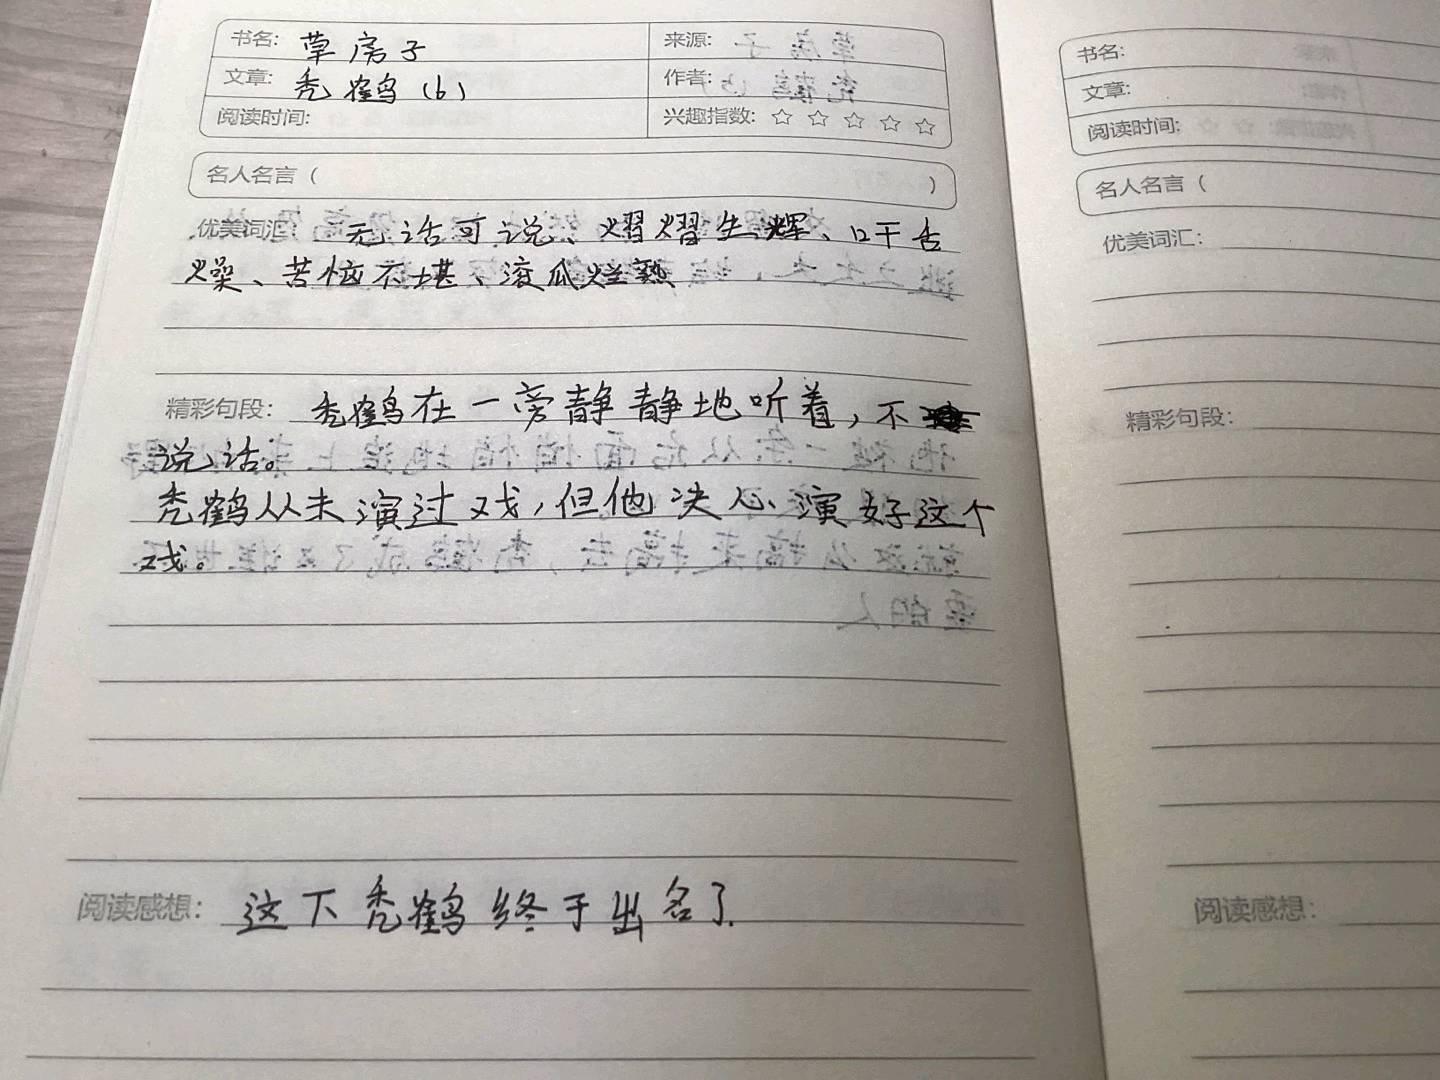 书名: 草房子 来源:
文章: 秃鹤(6) 作者:
阅读时间: 兴趣指数: ☆ ☆ ☆ ☆ ☆
名人名言 ( )
优美词汇: 无话可说、熠熠生辉、口干舌
燥、苦恼不堪、滚瓜烂熟
精彩句段: 秃鹤在一旁静静地听着,不
说话。
秃鹤从未演过戏,但他决心演好这个
戏。
阅读感想: 这下秃鹤终于出名了.
书名:
文章:
阅读时间:
名人名言 (
优美词汇:
精彩句段:
阅读感想: